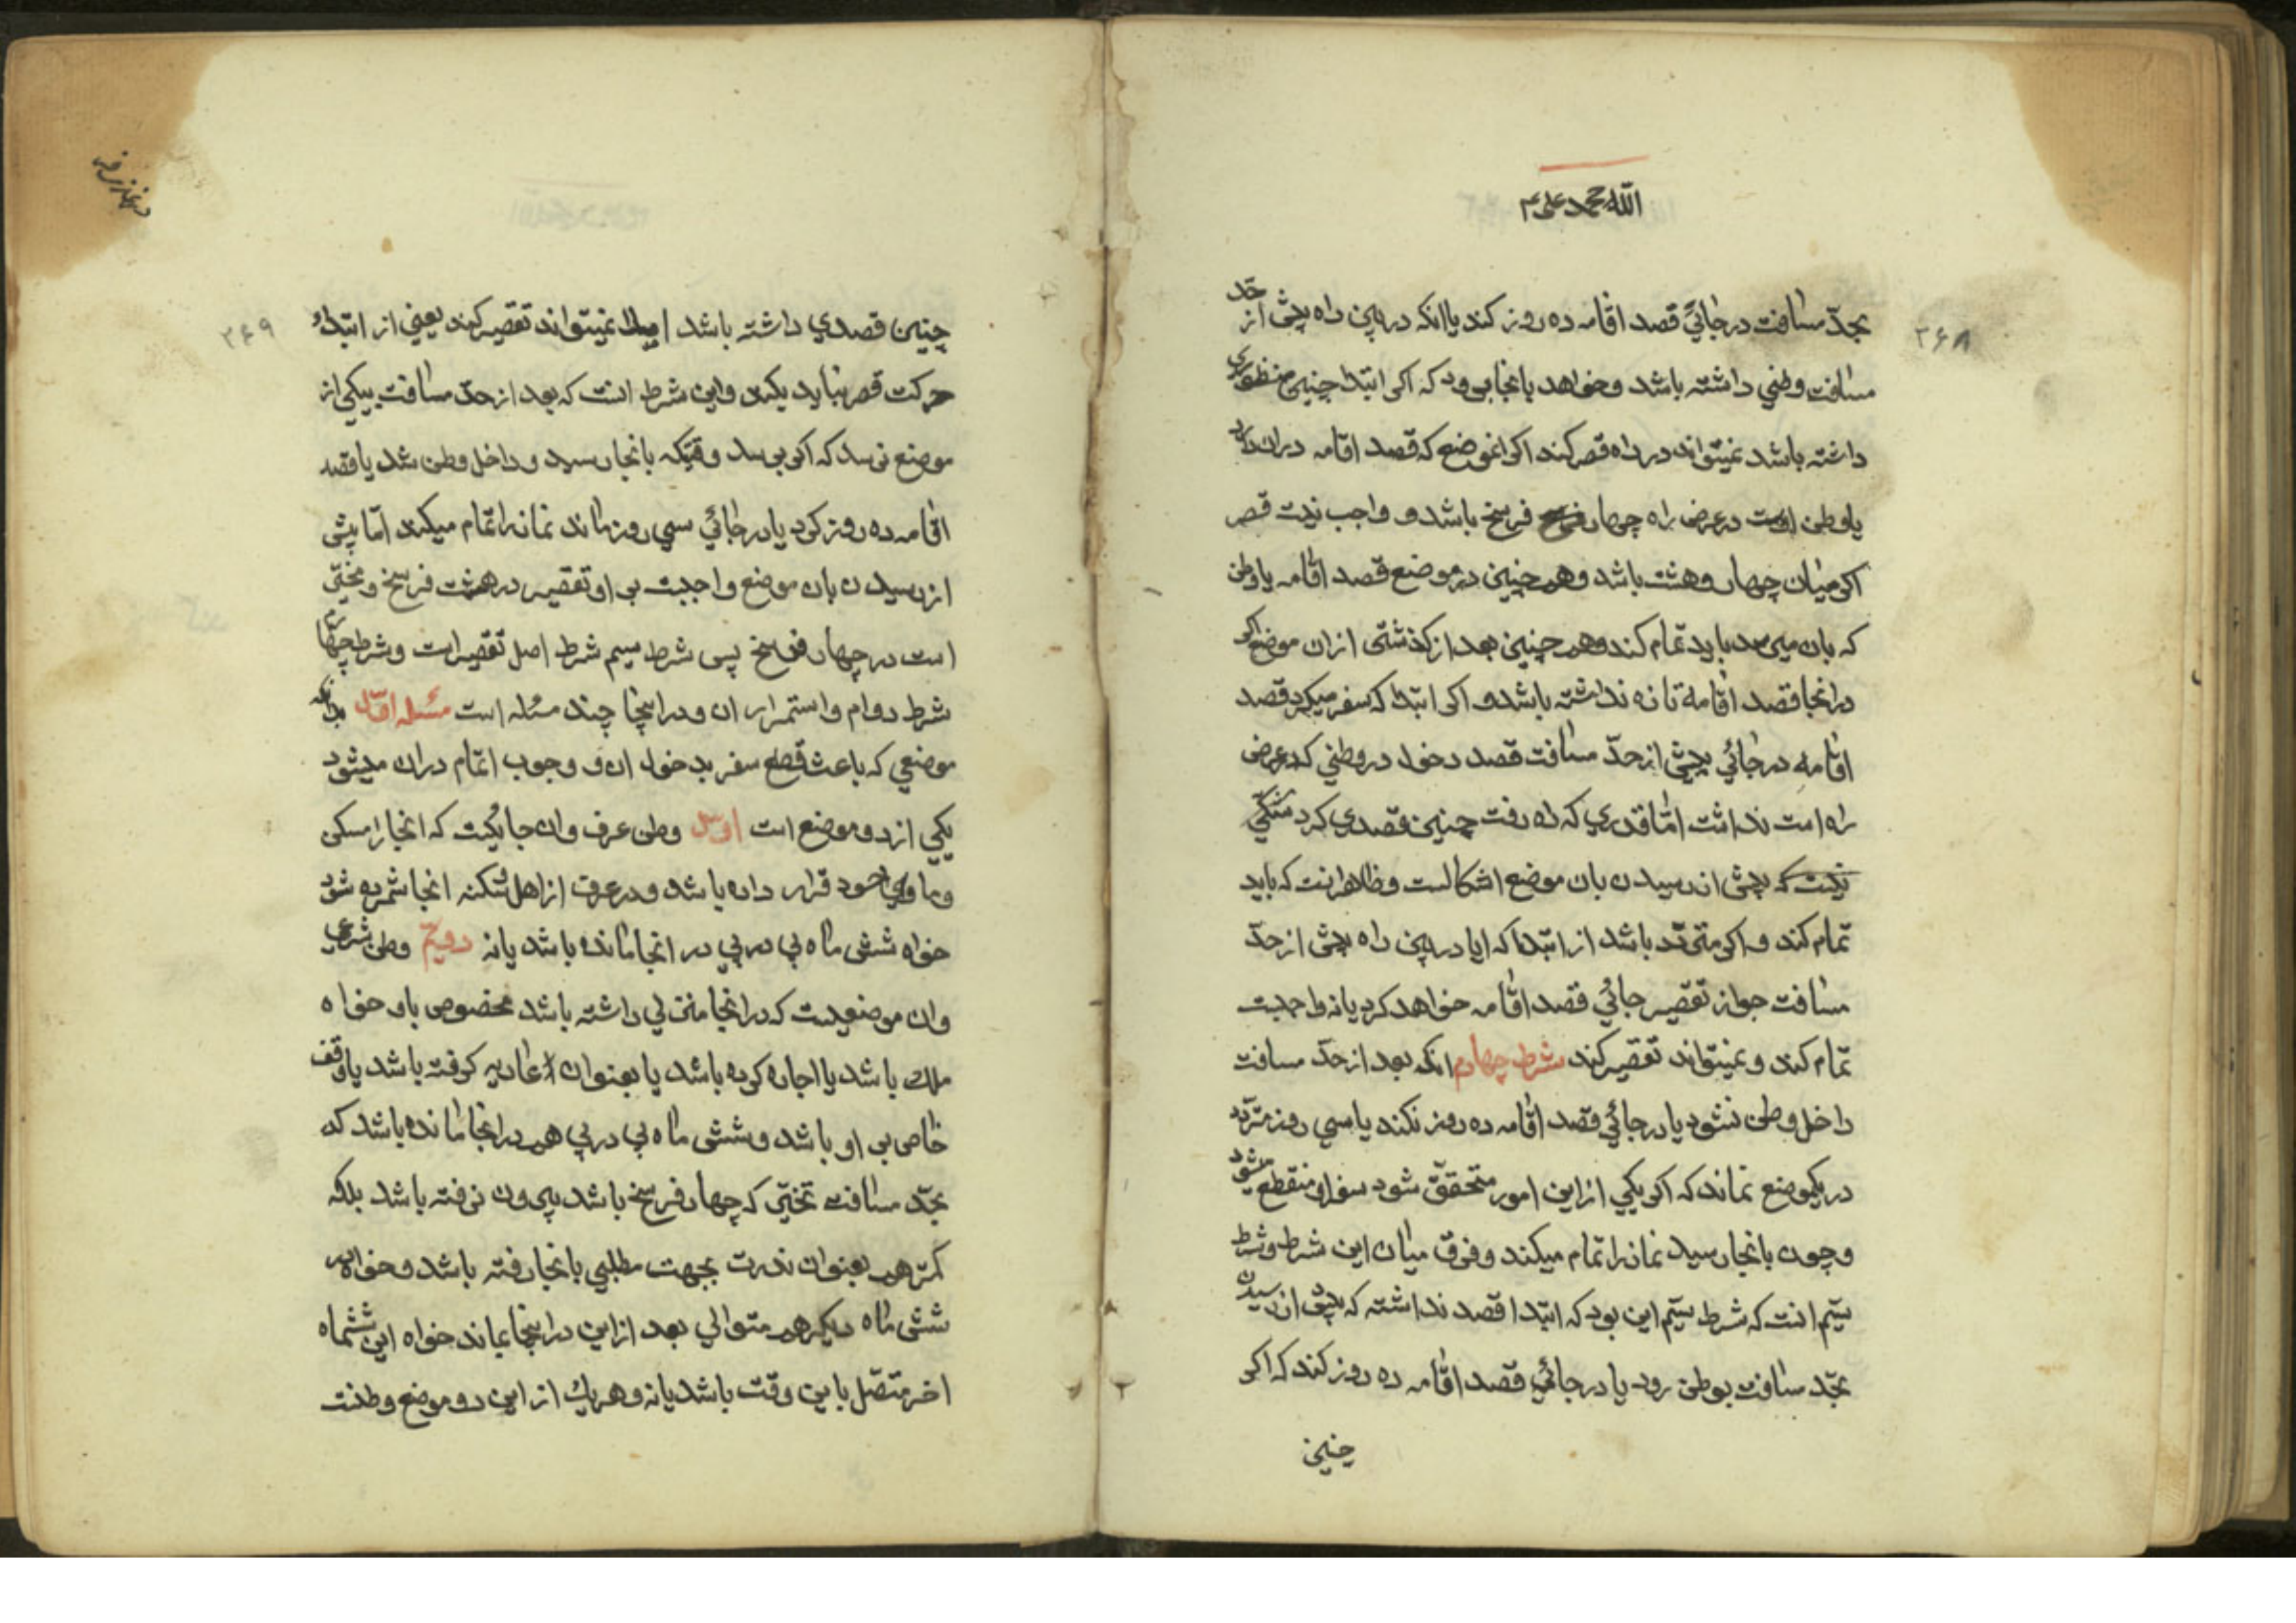 الله محمد علی ۴
۳۶۸
بحدّ مسافت در جائی قصد اقامه ده روز کند یا انکه در بین راه پیش از حدّ
مسافت وطنی داشته باشد و خواهد بانجا برود که اکر ابتدا چنین منظوری
داشته باشد نمیتواند در راه قصر کند اکر انموضع که قصد اقامه دران دارد
یا وطن اوست در عرض راه چهار فرسخ باشد و واجب نیست قصر
اکر میان چهار و هشت باشد و همچنین در موضع قصد اقامه یا وطن
که بان میرسد باید تمام کند و همچنین بعد از کذشتن ازان موضع اکر
درانجا قصد اقامه تا نه نداشته باشد و اکر ابتدا که سفر میکرد قصد
اقامه در جائی پیش از حدّ مسافت قصد دخول در وطنی که در عرض
راه است نداشت امّا قدری که راه رفت چنین قصدی کرد
نیست که پیش از رسیدن بان موضع اشکالست و ظاهر انست که باید
تمام کند و اکر متردّد باشد از ابتدا که ایا در بین راه پیش از حدّ
مسافت جواز تقصیر جائی قصد اقامه خواهد کرد یا نه واجبست
تمام کند و نمیتواند تقصیر کند شرط چهارم انکه بعد از حدّ مسافت
داخل وطن نشود یا در جائی قصد اقامه ده روز نکند یا سی روز متردّد
در یکموضع نماند که اکر یکی از این امور متحقّق شود سفر او منقطع میشود
و چون بانجا رسید نماز را تمام میکند و فرق میان این شرط و شرط
سیّم انست که شرط سیّم این بود که ابتدا قصد نداشته که پیش از رسیدن
بحدّ مسافت بوطن رود یا در جائی قصد اقامه ده روز کند که اکر
چنین
۳۶۹
چنین قصدی داشته باشد اصلا نمیتواند تقصیر کند یعنی از ابتداء
حرکت قصر نباید بکند و این شرط انست که بعد از حدّ مسافت بیکی از
موضع نرسد که اکر برسد وقتیکه بانجا رسید و داخل وطن شد یا قصد
اقامه ده روز کرد یا در جائی سی روز ماند نماز را تمام میکند امّا پیش
از رسیدن بان موضع واجبست بر او تقصیر در هشت فرسخ و مخیّر
است در چهار فرسخ پس شرط سیم شرط اصل تقصیر است و شرط چهارم
شرط دوام و استمرار ان و در اینجا چند مسئله است مسئله اوّل بدانکه
موضعی که باعث قطع سفر بدخول ان و وجوب اتمام دران میشود
یکی از دو موضع است اوّل وطن عرف و ان جائیست که انجا را مسکن
و ماوای خود قرار داده باشد و در عرف از اهل و سکنه انجا شمرده شود
خواه شش ماه پی در پی در انجا مانده باشد یا نه دویّم وطن شرعی
و ان موضعیست که درانجا منزلی داشته باشد مخصوص باو خواه
ملک باشد یا اجاره کرده باشد یا بعنوان اعاریه کرفته باشد یا وقف
خاص بر او باشد و شش ماه پی در پی هم درانجا مانده باشد که
بحدّ مسافت تخییر که چهار فرسخ باشد بیرون نرفته باشد بلکه
کمتر هم بعنوان ندرت بجهت مطلبی بانجا رفته باشد و خواهد
شش ماه دیکر هم متوالی بعد از این دراینجا بماند خواه این ششماه
اخر متصّل باین وقت باشد یا نه و هر یک از این دو موضع وطنست